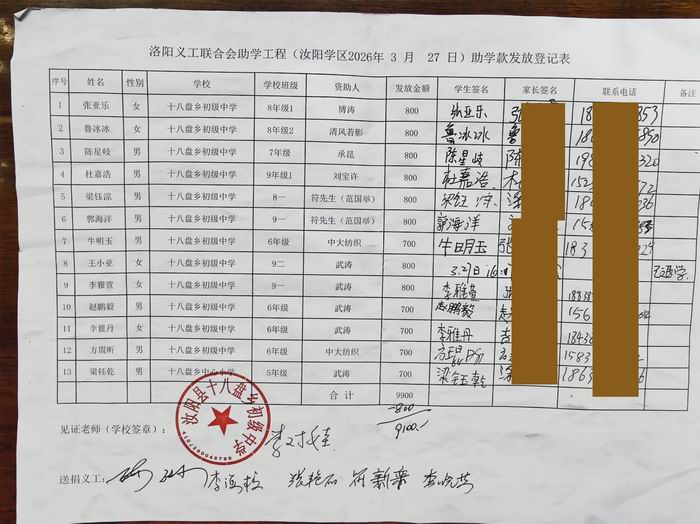 洛阳义工联合会助学工程（汝阳学区2026年 3 月 27 日）助学款发放登记表
序号 姓名 性别 学校 学校班级 资助人 发放金额 学生签名 家长签名 联系电话 备注
1 张亚乐 女 十八盘乡初级中学 8年级1 博涛 800 张亚乐 张
2 鲁冰冰 女 十八盘乡初级中学 8年级2 清风若影 800 鲁冰冰 鲁
3 陈星岐 男 十八盘乡初级中学 7年级 承昆 800 陈星岐 陈
4 杜嘉浩 男 十八盘乡初级中学 9年级1 刘宝许 800 杜嘉浩
5 梁钰淙 男 十八盘乡初级中学 8一 符先生（范国举） 800
6 郭海洋 男 十八盘乡初级中学 9一 符先生（范国举） 800 郭海洋
7 牛明玉 男 十八盘乡初级中学 6年级 中大纺织 700 牛明玉 张
8 王小亚 女 十八盘乡初级中学 9二 武涛 800 已退学
9 李雅萱 女 十八盘乡初级中学 9一 武涛 800 李雅萱
10 赵鹏毅 男 十八盘乡初级中学 6年级 武涛 700 赵鹏毅
11 李雅丹 女 十八盘乡初级中学 6年级 武涛 700 李雅丹
12 方琨昕 男 十八盘乡初级中学 6年级 中大纺织 700
13 梁钰乾 男 十八盘乡中心小学 5年级 武涛 700 梁钰乾
合计 9900
-800
9100.-
见证老师（学校签章）：
汝阳县十八盘乡初级中学
送捐义工：